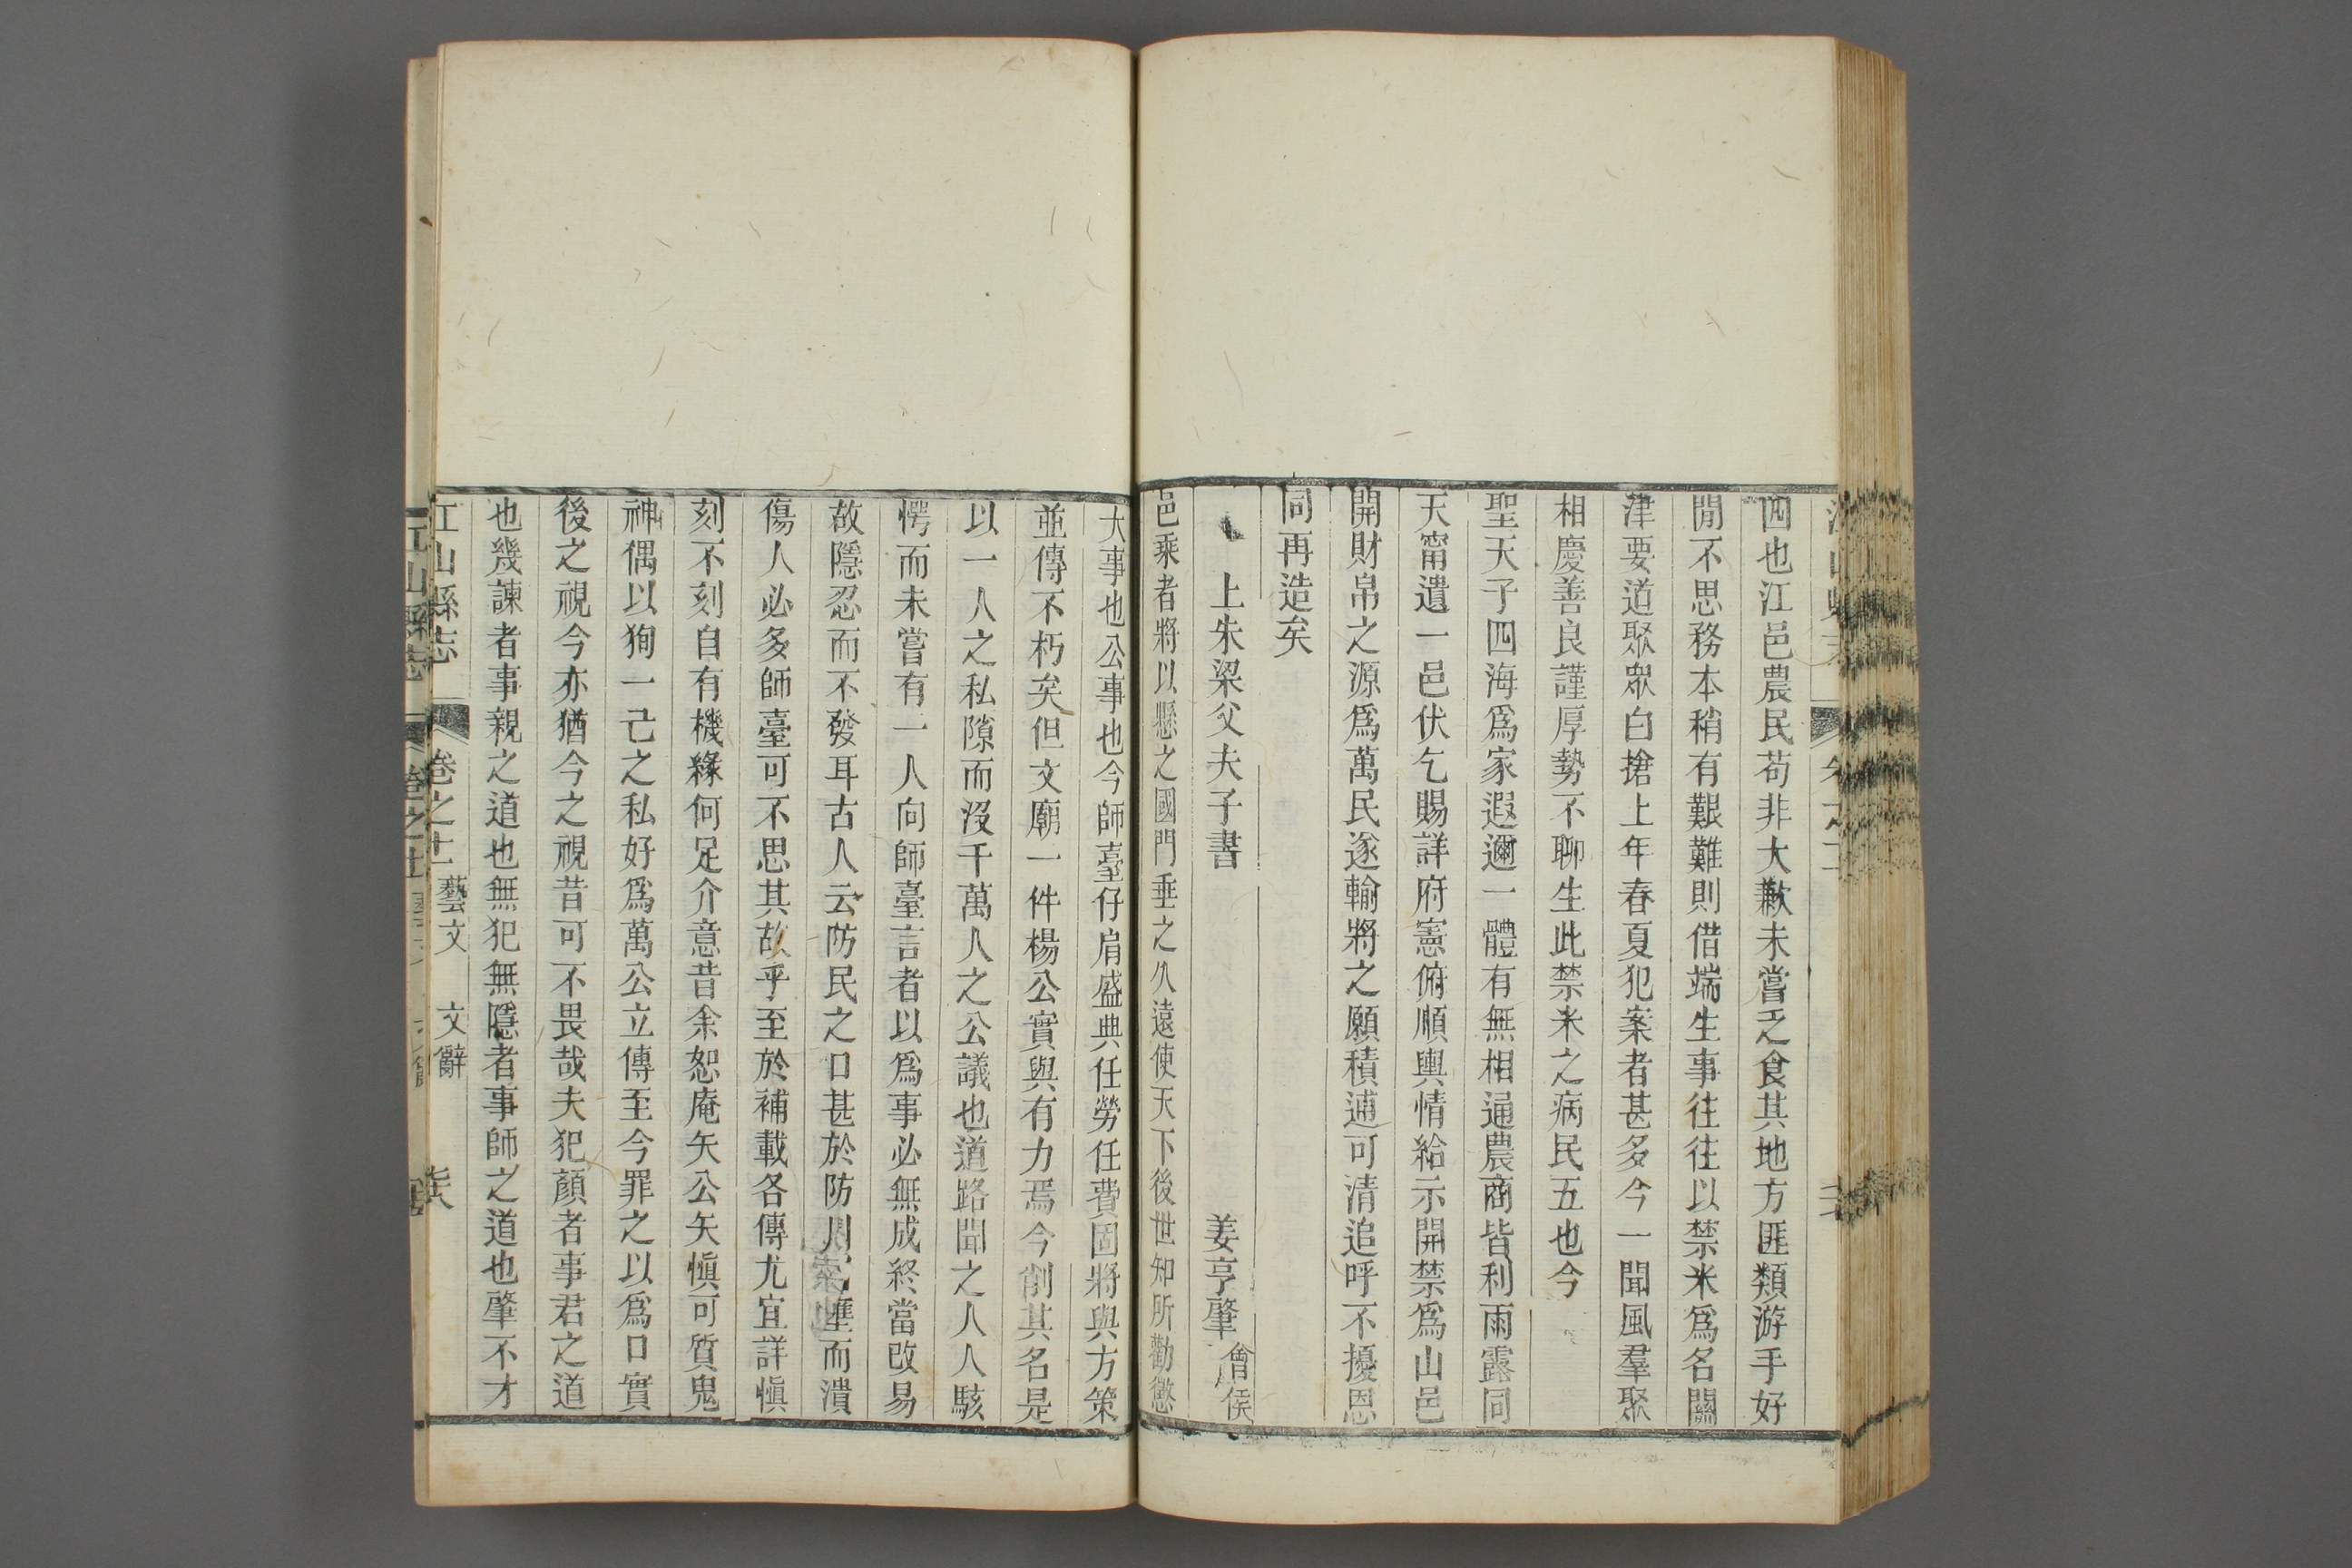 四也江邑農民苟非大歉未嘗乏食其地方匪類游手好
閒不思務本稍有艱難則借端生事往往以禁米爲名關
津要道聚眾白搶上年春夏犯案者甚多今一聞風羣聚
相慶善良謹厚勢不聊生此禁米之病民五也今
聖天子四海爲家遐邇一體有無相通農商皆利雨露同
天甯遺一邑伏乞賜詳府憲俯順輿情給示開禁爲山邑
開財帛之源爲萬民遂輸將之願積逋可清追呼不擾恩
同再造矣
上朱梁父夫子書
姜亨肇
曾侯
邑乘者將以懸之國門垂之久遠使天下後世知所勸懲
大事也公事也今師臺仔肩盛典任勞任費固將與方策
並傳不朽矣但文廟一件楊公實與有力焉今削其名是
以一人之私隙而沒千萬人之公議也道路聞之人人駭
愕而未嘗有一人向師臺言者以爲事必無成終當改易
故隱忍而不發耳古人云防民之口甚於防川壅而潰
傷人必多師臺可不思其故乎至於補載各傳尤宜詳慎
刻不刻自有機緣何足介意昔余恕庵矢公矢慎可質鬼
神偶以狥一己之私好爲萬公立傳至今罪之以爲口實
後之視今亦猶今之視昔可不畏哉夫犯顏者事君之道
也幾諫者事親之道也無犯無隱者事師之道也肇不才
江山縣志
卷之十一
藝文
文辭
江山縣志